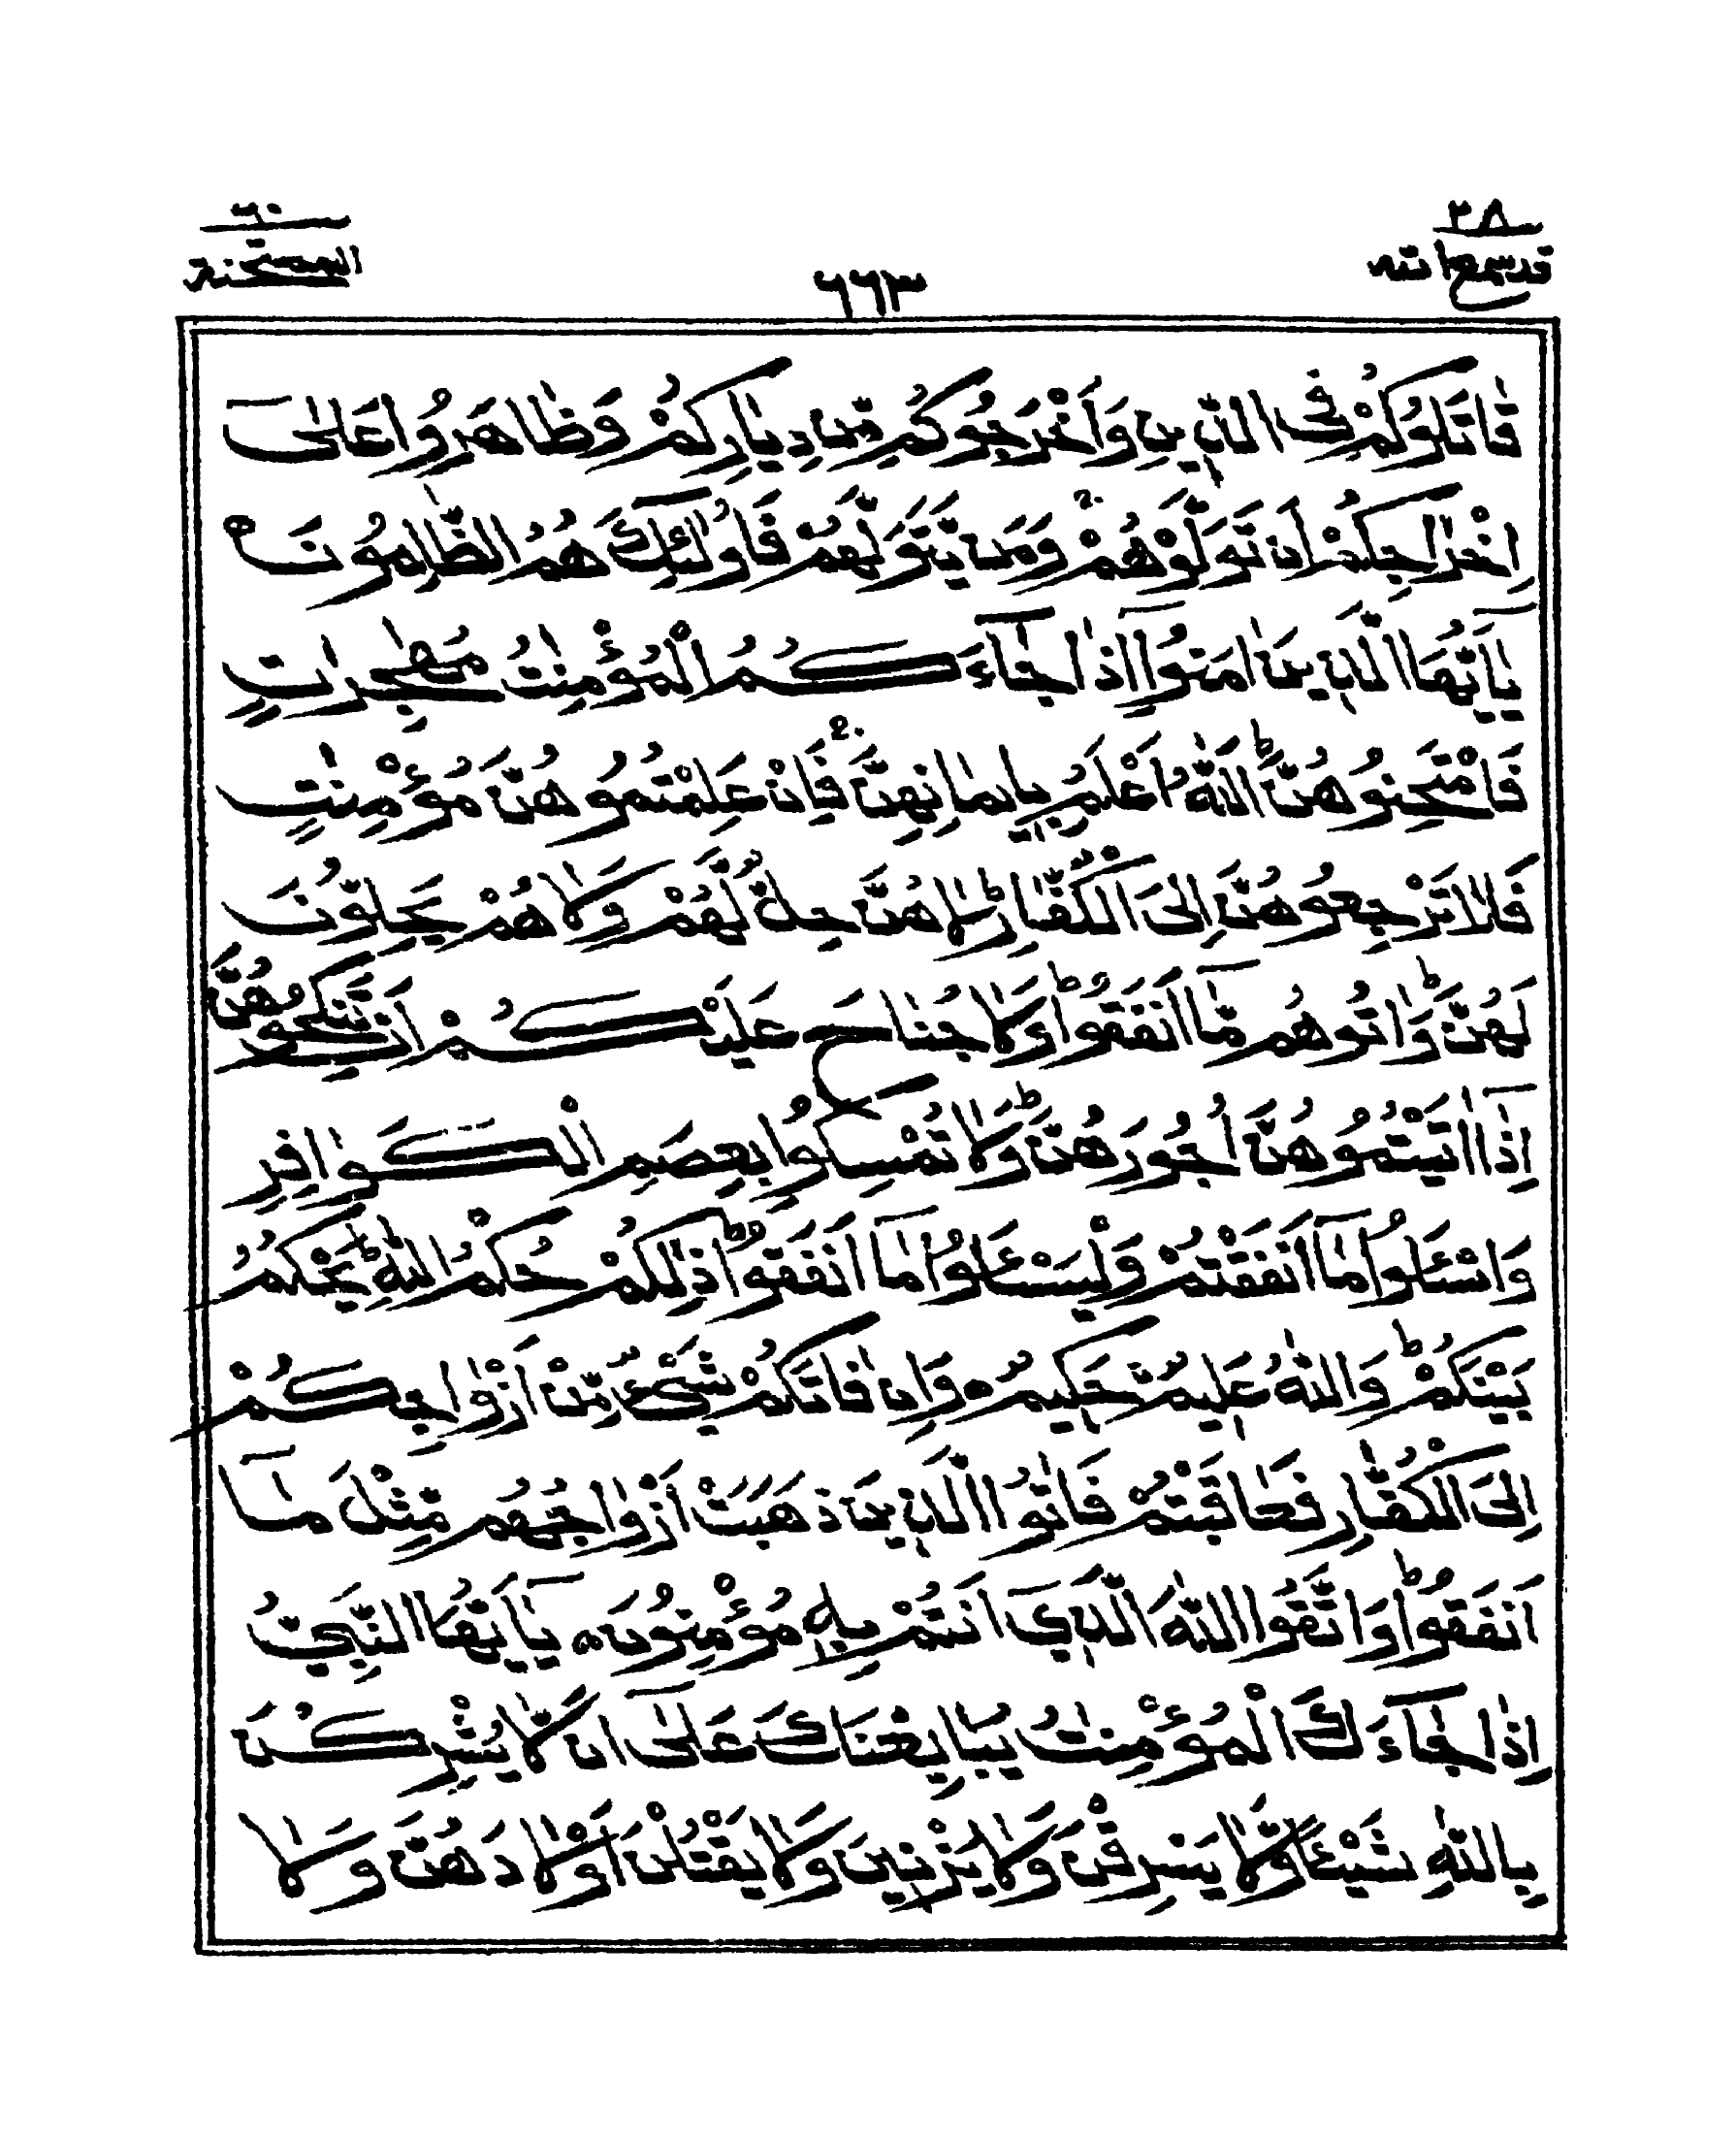 ٢٨
قد سمع الله
٦٦٣
٦٠
الممتحنة
قَاتَلُوْكُمْ فِی الدِّيْنِ وَاَخْرَجُوْكُمْ مِّنْ دِيَارِكُمْ وَظَاهَرُوْا عَلٰٓى
اِخْرَاجِكُمْ اَنْ تَوَلَّوْهُمْ وَمَنْ يَّتَوَلَّهُمْ فَاُولٰٓئِكَ هُمُ الظّٰلِمُوْنَ ۝
يٰٓاَيُّهَا الَّذِيْنَ اٰمَنُوْٓا اِذَا جَآءَكُمُ الْمُؤْمِنٰتُ مُهٰجِرٰتٍ
فَامْتَحِنُوْهُنَّ ؕ اَللّٰهُ اَعْلَمُ بِاِيْمَانِهِنَّ فَاِنْ عَلِمْتُمُوْهُنَّ مُؤْمِنٰتٍ
فَلَا تَرْجِعُوْهُنَّ اِلَى الْكُفَّارِ ؕ لَا هُنَّ حِلٌّ لَّهُمْ وَلَا هُمْ يَحِلُّوْنَ
لَهُنَّ ؕ وَاٰتُوْهُمْ مَّآ اَنْفَقُوْا ؕ وَلَا جُنَاحَ عَلَيْكُمْ اَنْ تَنْكِحُوْهُنَّ
اِذَآ اٰتَيْتُمُوْهُنَّ اُجُوْرَهُنَّ ؕ وَلَا تُمْسِكُوْا بِعِصَمِ الْكَوَافِرِ
وَاسْئَلُوْا مَآ اَنْفَقْتُمْ وَلْيَسْئَلُوْا مَآ اَنْفَقُوْا ؕ ذٰلِكُمْ حُكْمُ اللّٰهِ ؕ يَحْكُمُ
بَيْنَكُمْ ؕ وَاللّٰهُ عَلِيْمٌ حَكِيْمٌ ۝ وَاِنْ فَاتَكُمْ شَیْءٌ مِّنْ اَزْوَاجِكُمْ
اِلَى الْكُفَّارِ فَعَاقَبْتُمْ فَاٰتُوا الَّذِيْنَ ذَهَبَتْ اَزْوَاجُهُمْ مِّثْلَ مَآ
اَنْفَقُوْا ؕ وَاتَّقُوا اللّٰهَ الَّذِيْٓ اَنْتُمْ بِهٖ مُؤْمِنُوْنَ ۝ يٰٓاَيُّهَا النَّبِیُّ
اِذَا جَآءَكَ الْمُؤْمِنٰتُ يُبَايِعْنَكَ عَلٰٓى اَنْ لَّا يُشْرِكْنَ
بِاللّٰهِ شَيْئًا وَّلَا يَسْرِقْنَ وَلَا يَزْنِيْنَ وَلَا يَقْتُلْنَ اَوْلَادَهُنَّ وَلَا